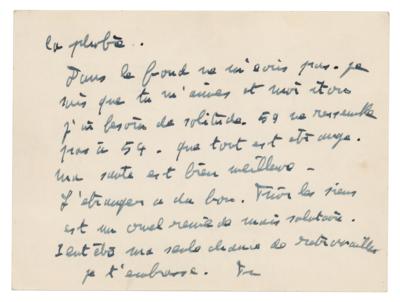 la photo..
Dans le fond ne m'écris pas. je
sais que tu m'aimes et moi itou
j'ai besoin de solitude. 59 ne ressemble
pas à 54. que tout est étrange.
ma santé est bien meilleure -
L'étranger a du bon. Fuir les siens
est un cruel remède mais salutaire.
Peut être ma seule chance de retravailler
je t'embrasse.